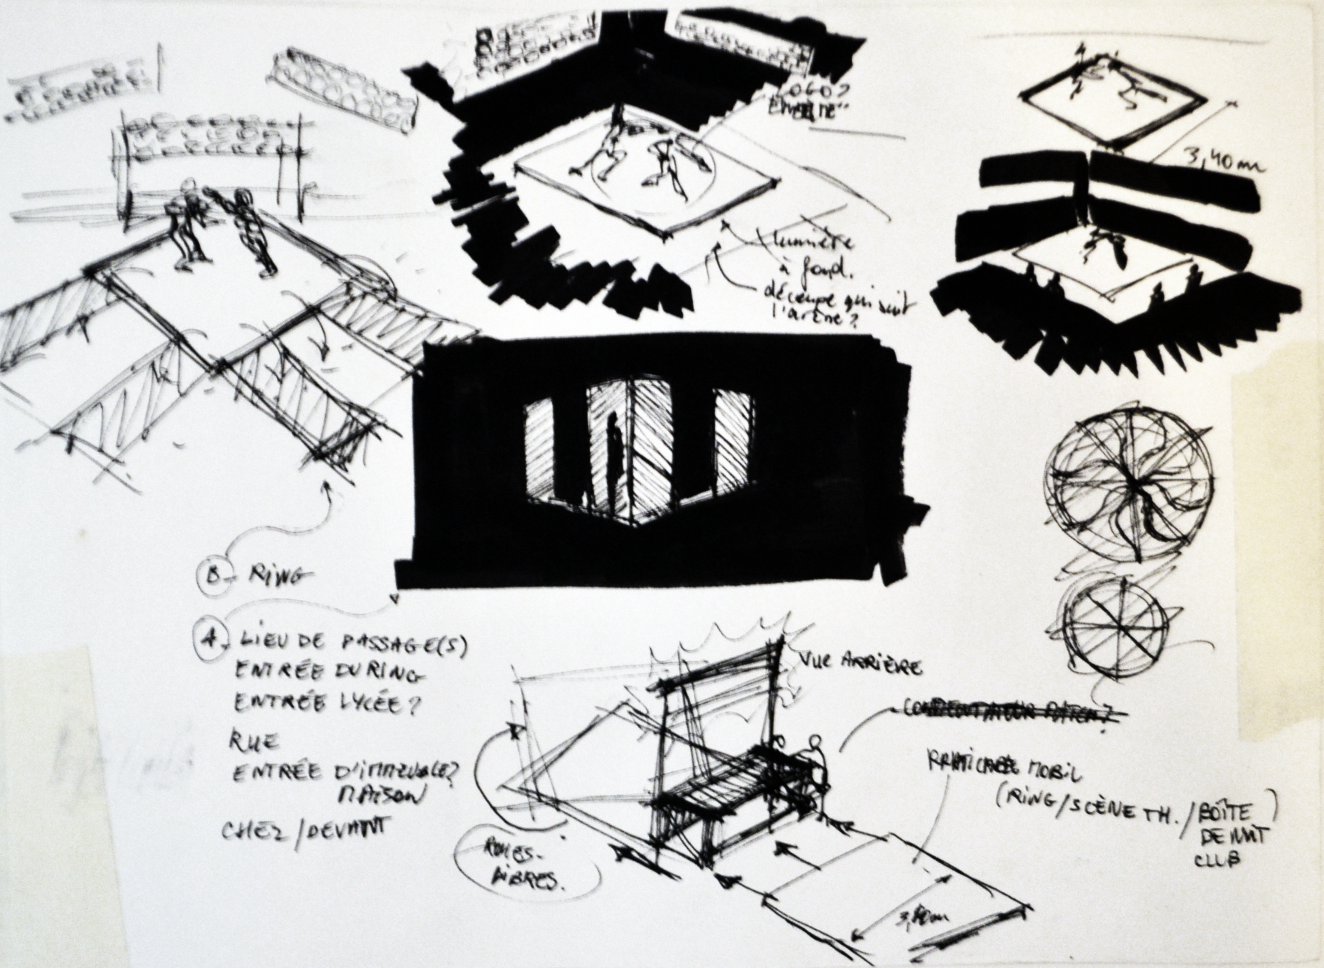 LOGO?
3,40m
lumière
à fond.
découpe qui suit
l'arène?
B - RING
A - LIEU DE PASSAGE(S)
ENTRÉE DU RING
ENTRÉE LYCÉE?
RUE
ENTRÉE D'IMMEUBLE?
MAISON
CHEZ / DEVANT
VUE ARRIÈRE
PRATICABLE MOBIL
(RING/SCÈNE TH. / BOÎTE
DE NUIT
CLUB)
3,40m